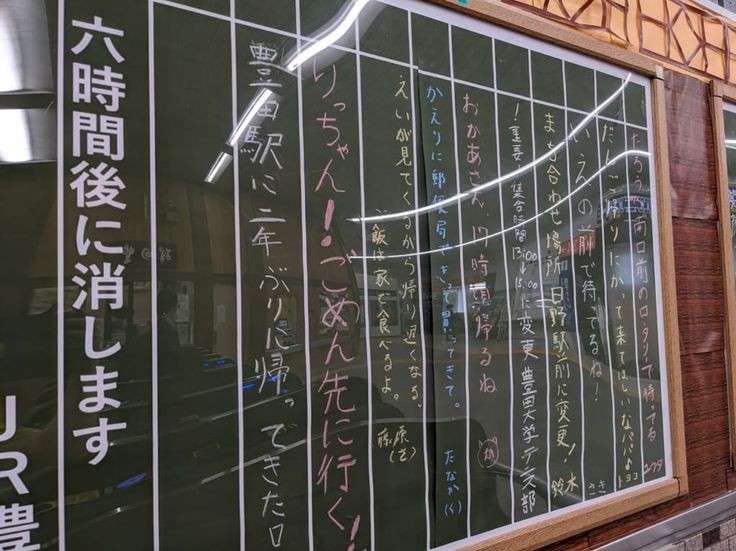 口前のロータリーで待ってる
だんご帰りにかって来てほしいな パパ♪ トヨコ
いえの前で待ってるね! さき
まち合わせ場所 日野駅前に変更! 鈴木
!重要 集合時間 13:00→15:00に変更 豊田大学テニス部
おかあさん、17時頃帰るね
かえりに郵便局できって買ってきて。 たなか(く)
えいが見てくるから帰り遅くなる、
ご飯は家で食べるよ。 藤原
りっちゃん!ごめん先に行く!
豊田駅に二年ぶりに帰ってきた
六時間後に消します
JR豊